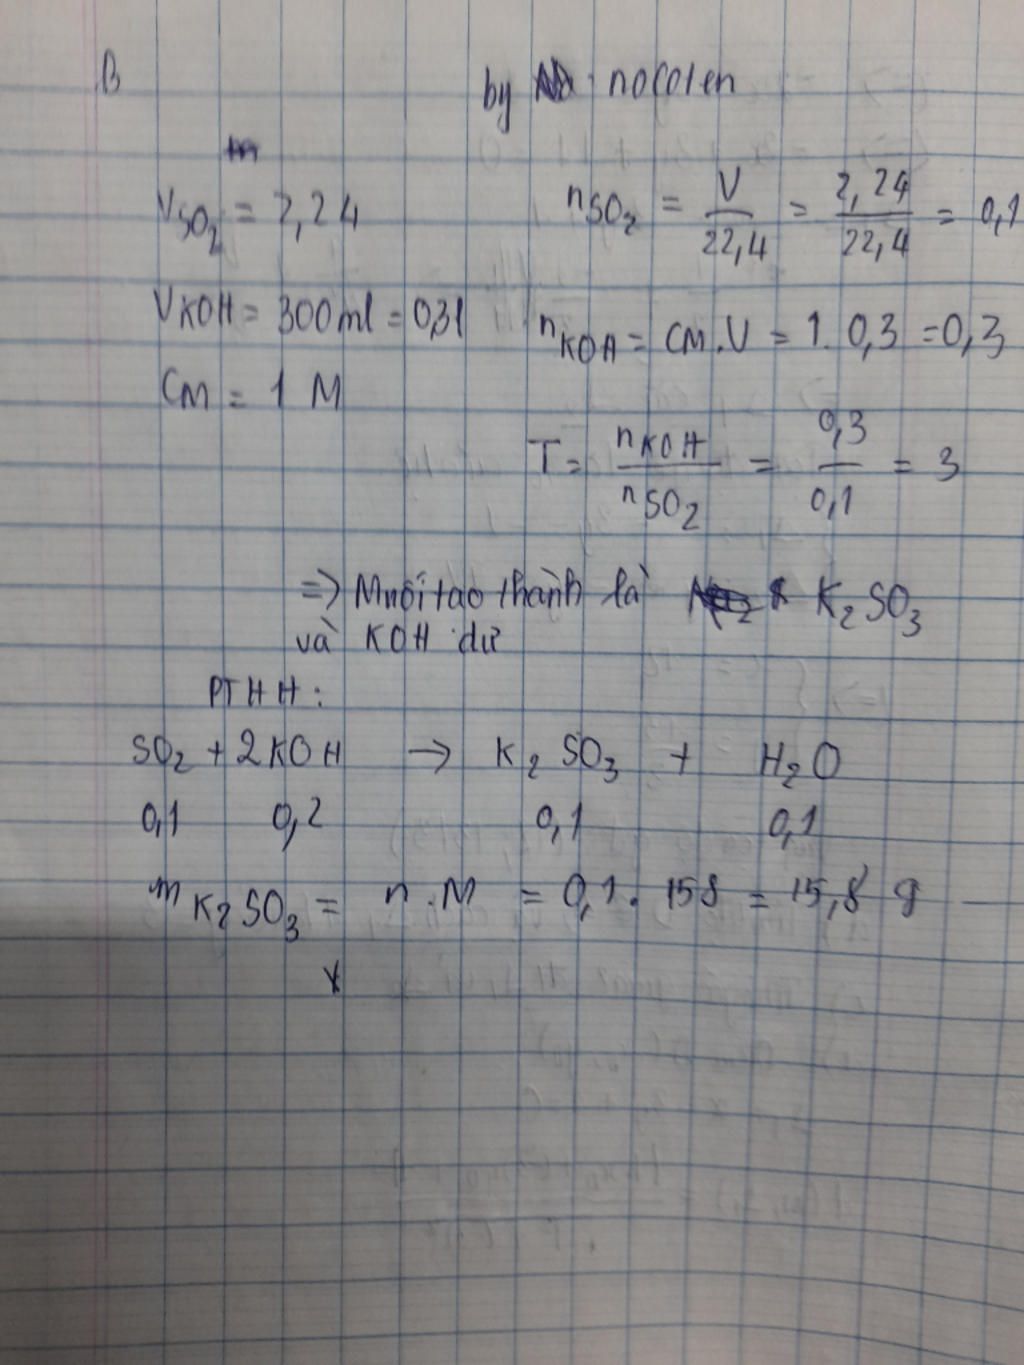 B
by nocolen
VSO2 = 2,24
nSO2 = V/22,4 = 2,24/22,4 = 0,1
VKOH = 300ml = 0,3l
nKOH = CM.V = 1.0,3 = 0,3
CM = 1 M
T = nKOH/nSO2 = 0,3/0,1 = 3
=> Muối tạo thành là K2SO3
và KOH dư
PTHH:
SO2 + 2KOH → K2SO3 + H2O
0,1 0,2 0,1 0,1
mK2SO3 = n.M = 0,1.158 = 15,8 g